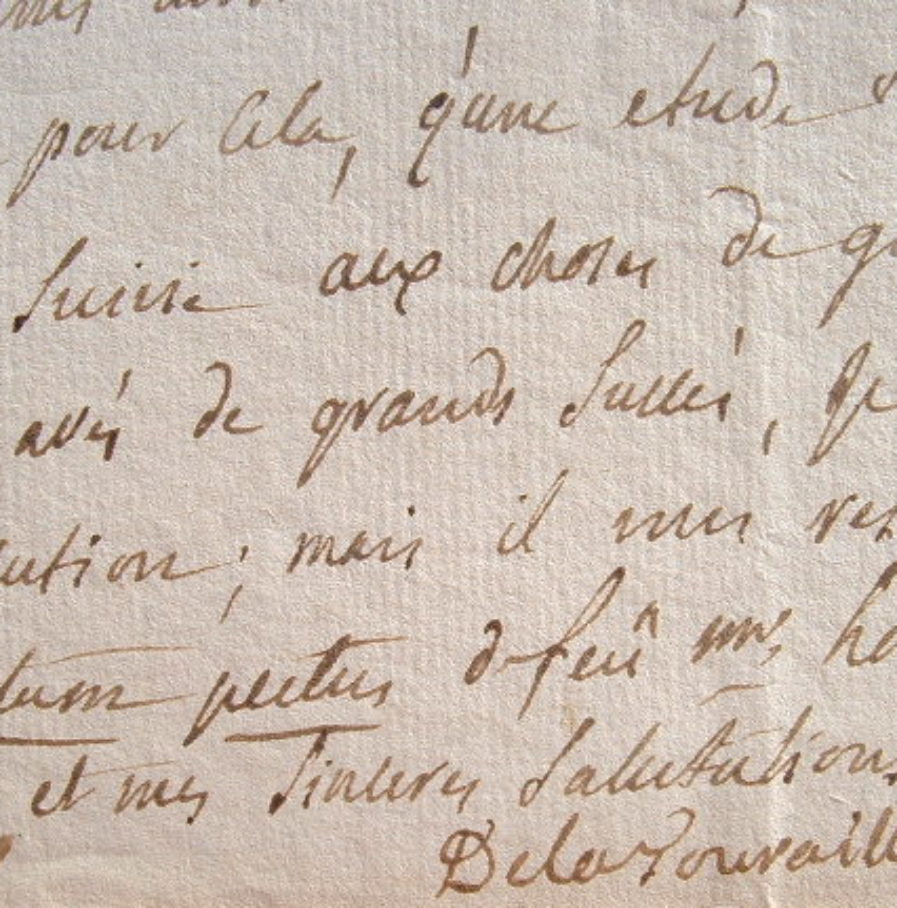 pour cela, qu'une etude
Suivie aux choses de
avés de grands Succès, je
ution; mais il me
tum pectus de feu mr
et mes Sinceres Salutations
De la Touraill